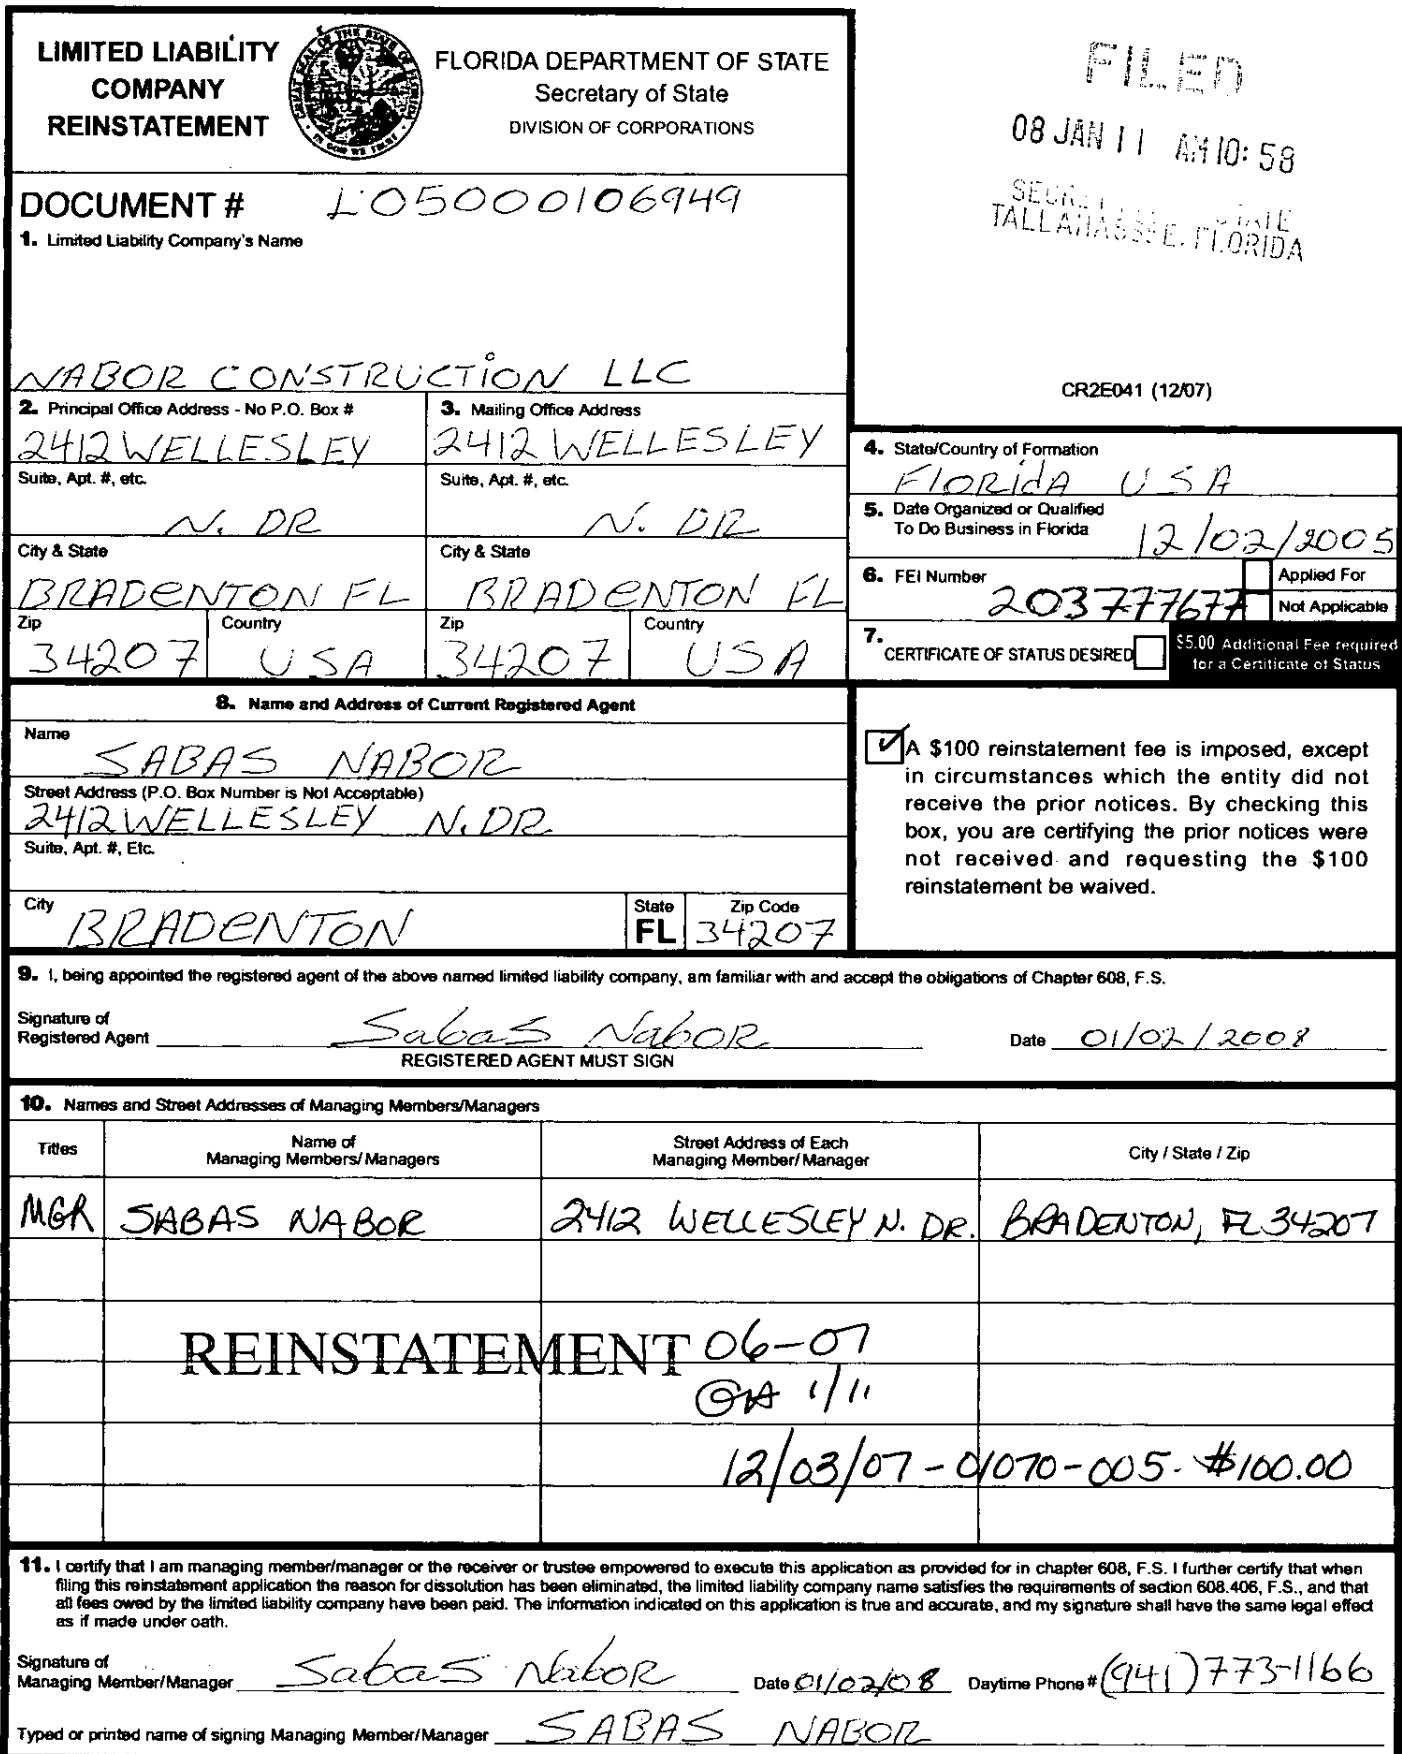 LIMITED LIABILITY
COMPANY
REINSTATEMENT
FLORIDA DEPARTMENT OF STATE
Secretary of State
DIVISION OF CORPORATIONS
FILED
08 JAN 11 AM 10:58
STATE
TALLAHASSEE, FLORIDA
DOCUMENT # L05000106949
1. Limited Liability Company's Name
NABOR CONSTRUCTION LLC
CR2E041 (12/07)
2. Principal Office Address - No P.O. Box #
2412 WELLESLEY
Suite, Apt. #, etc.
N. DR
City & State
BRADENTON FL
Zip Country
34207 USA
3. Mailing Office Address
2412 WELLESLEY
Suite, Apt. #, etc.
N. DR
City & State
BRADENTON FL
Zip Country
34207 USA
4. State/Country of Formation
FLORIDA USA
5. Date Organized or Qualified
To Do Business in Florida 12/02/2005
6. FEI Number
203777677
Applied For
Not Applicable
7. CERTIFICATE OF STATUS DESIRED
$5.00 Additional Fee required
for a Certificate of Status
8. Name and Address of Current Registered Agent
Name
SABAS NABOR
Street Address (P.O. Box Number is Not Acceptable)
2412 WELLESLEY N. DR
Suite, Apt. #, Etc.
City State Zip Code
BRADENTON FL 34207
A $100 reinstatement fee is imposed, except
in circumstances which the entity did not
receive the prior notices. By checking this
box, you are certifying the prior notices were
not received and requesting the $100
reinstatement be waived.
9. I, being appointed the registered agent of the above named limited liability company, am familiar with and accept the obligations of Chapter 608, F.S.
Signature of
Registered Agent Sabas Nabor Date 01/02/2008
REGISTERED AGENT MUST SIGN
10. Names and Street Addresses of Managing Members/Managers
Titles
Name of
Managing Members/Managers
Street Address of Each
Managing Member/Manager
City / State / Zip
MGR SABAS NABOR 2412 WELLESLEY N. DR. BRADENTON, FL 34207
REINSTATEMENT 06-07
1/11
12/03/07-01070-005- $100.00
11. I certify that I am managing member/manager or the receiver or trustee empowered to execute this application as provided for in chapter 608, F.S. I further certify that when
filing this reinstatement application the reason for dissolution has been eliminated, the limited liability company name satisfies the requirements of section 608.406, F.S., and that
all fees owed by the limited liability company have been paid. The information indicated on this application is true and accurate, and my signature shall have the same legal effect
as if made under oath.
Signature of
Managing Member/Manager Sabas Nabor Date 01/02/08 Daytime Phone # (941) 773-1166
Typed or printed name of signing Managing Member/Manager SABAS NABOR